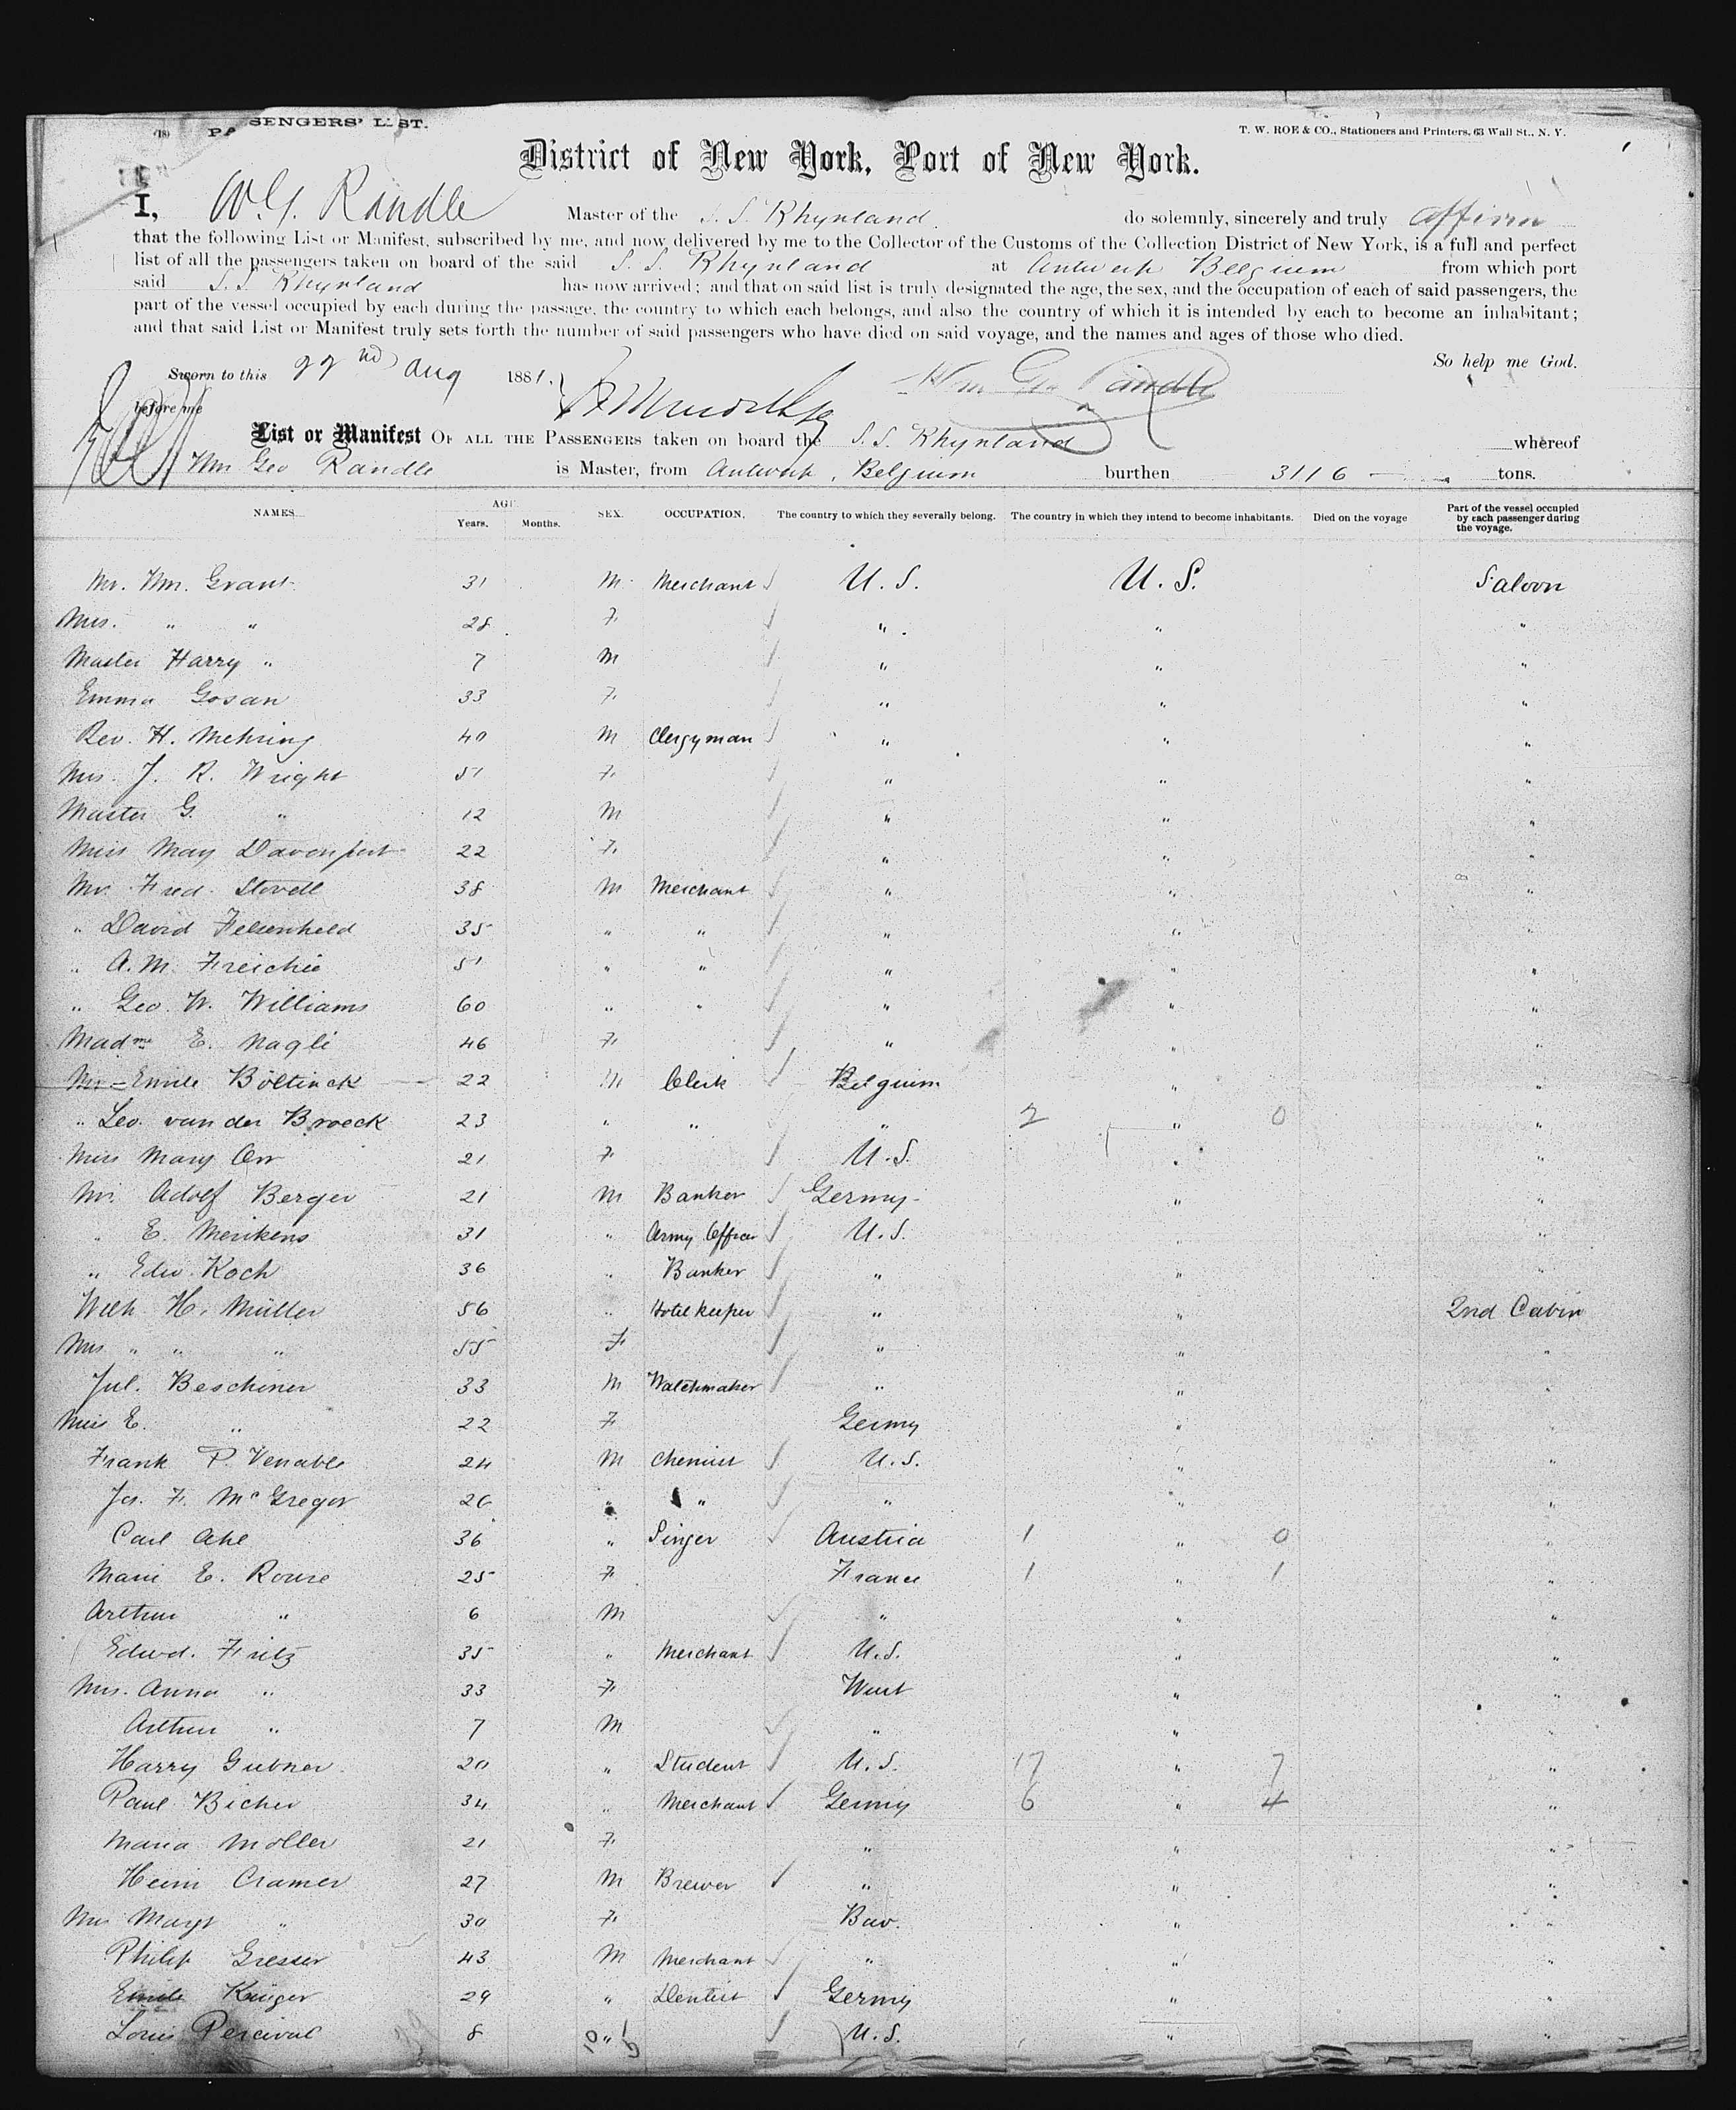 (18) PASSENGERS' LIST.
T. W. ROE & CO., Stationers and Printers, 63 Wall St., N. Y.
District of New York, Port of New York.
I, W. G. Randle Master of the S. S. Rhynland do solemnly, sincerely and truly affirm
that the following List or Manifest, subscribed by me, and now delivered by me to the Collector of the Customs of the Collection District of New York, is a full and perfect
list of all the passengers taken on board of the said S. S. Rhynland at Antwerp Belgium from which port
said S. S. Rhynland has now arrived; and that on said list is truly designated the age, the sex, and the occupation of each of said passengers, the
part of the vessel occupied by each during the passage, the country to which each belongs, and also the country of which it is intended by each to become an inhabitant;
and that said List or Manifest truly sets forth the number of said passengers who have died on said voyage, and the names and ages of those who died.
So help me God.
Sworn to this 22nd Aug 1881. Wm Geo Randle
before me
List or Manifest OF ALL THE PASSENGERS taken on board the S. S. Rhynland whereof
Wm Geo Randle is Master, from Antwerp, Belgium burthen 3116 tons.
NAMES AGE Years. Months. SEX. OCCUPATION. The country to which they severally belong. The country in which they intend to become inhabitants. Died on the voyage Part of the vessel occupied by each passenger during the voyage.
Mr. Wm. Grant 31 M Merchant U. S. U. S. Saloon
Mrs. " " 28 F " " "
Master Harry " 7 M " " "
Emma Gosan 33 F " " "
Rev. H. Mehring 40 M Clergyman " " "
Mrs. J. R. Wright 51 F " " "
Master G. " 12 M " " "
Miss May Davenport 22 F " " "
Mr. Fred. Stovell 38 M Merchant " " "
" David Felsenheld 35 " " " " "
" A. M. Freichie 51 " " " " "
" Geo. W. Williams 60 " " " " "
Madme E. Nagli 46 F " " "
Mr Emile Böltinck 22 M Clerk Belgium " "
" Leo. van der Broeck 23 " " " 2 " 0 "
Miss Mary Orr 21 F U. S. " "
Mr. Adolf Berger 21 M Banker Germy " "
" E. Merikens 31 " Army Officer U. S. " "
" Edw. Koch 36 " Banker " " "
Wilh. H. Müller 56 " Hotel keeper " " 2nd Cabin
Mrs. " " " 55 F " " "
Jul. Beschiner 33 M Watchmaker " " "
Miss E. " 22 F Germy " "
Frank P. Venable 24 M Chemist U. S. " "
Jas. F. McGregor 26 " " " " "
Carl Ahl 36 " Singer Austria 1 " 0 "
Marie E. Rouse 25 F France 1 " 1 "
Arthur " 6 M " " "
Edwd. Fritz 35 " Merchant U. S. " "
Mrs. Anna " 33 F Wurt " "
Arthur " 7 M " " "
Harry Gubner 20 " Student U. S. 17 " 7 "
Paul Bicher 34 " Merchant Germy 6 " 4 "
Maria Moller 21 F " " "
Heinr Cramer 27 M Brewer " " "
Mrs Margt " 30 F Bav. " "
Philip Gresser 43 M Merchant " " "
Emile Krüger 29 " Dentist Germy " "
Louis Percival 8 " U. S. " "